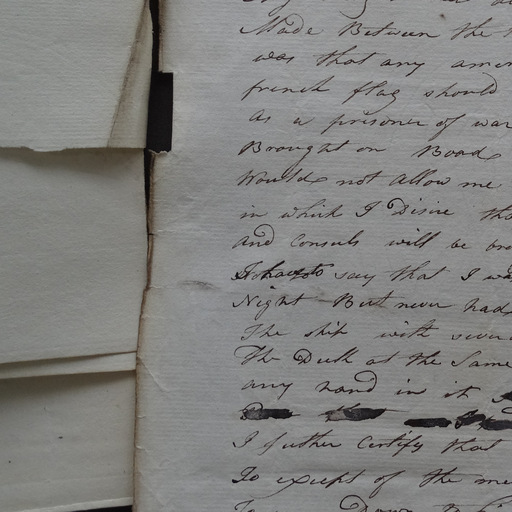 Made Between the
was that any amer
french flag should
as a prisoner of war
Brought on Board
Would not allow me
in which I Disire tha
and Consuls will be bro
I have to say that I wa
Night But never had
The ship with seve
the Duck at the Same
any hand in it
I futher Certify that
To except of the me